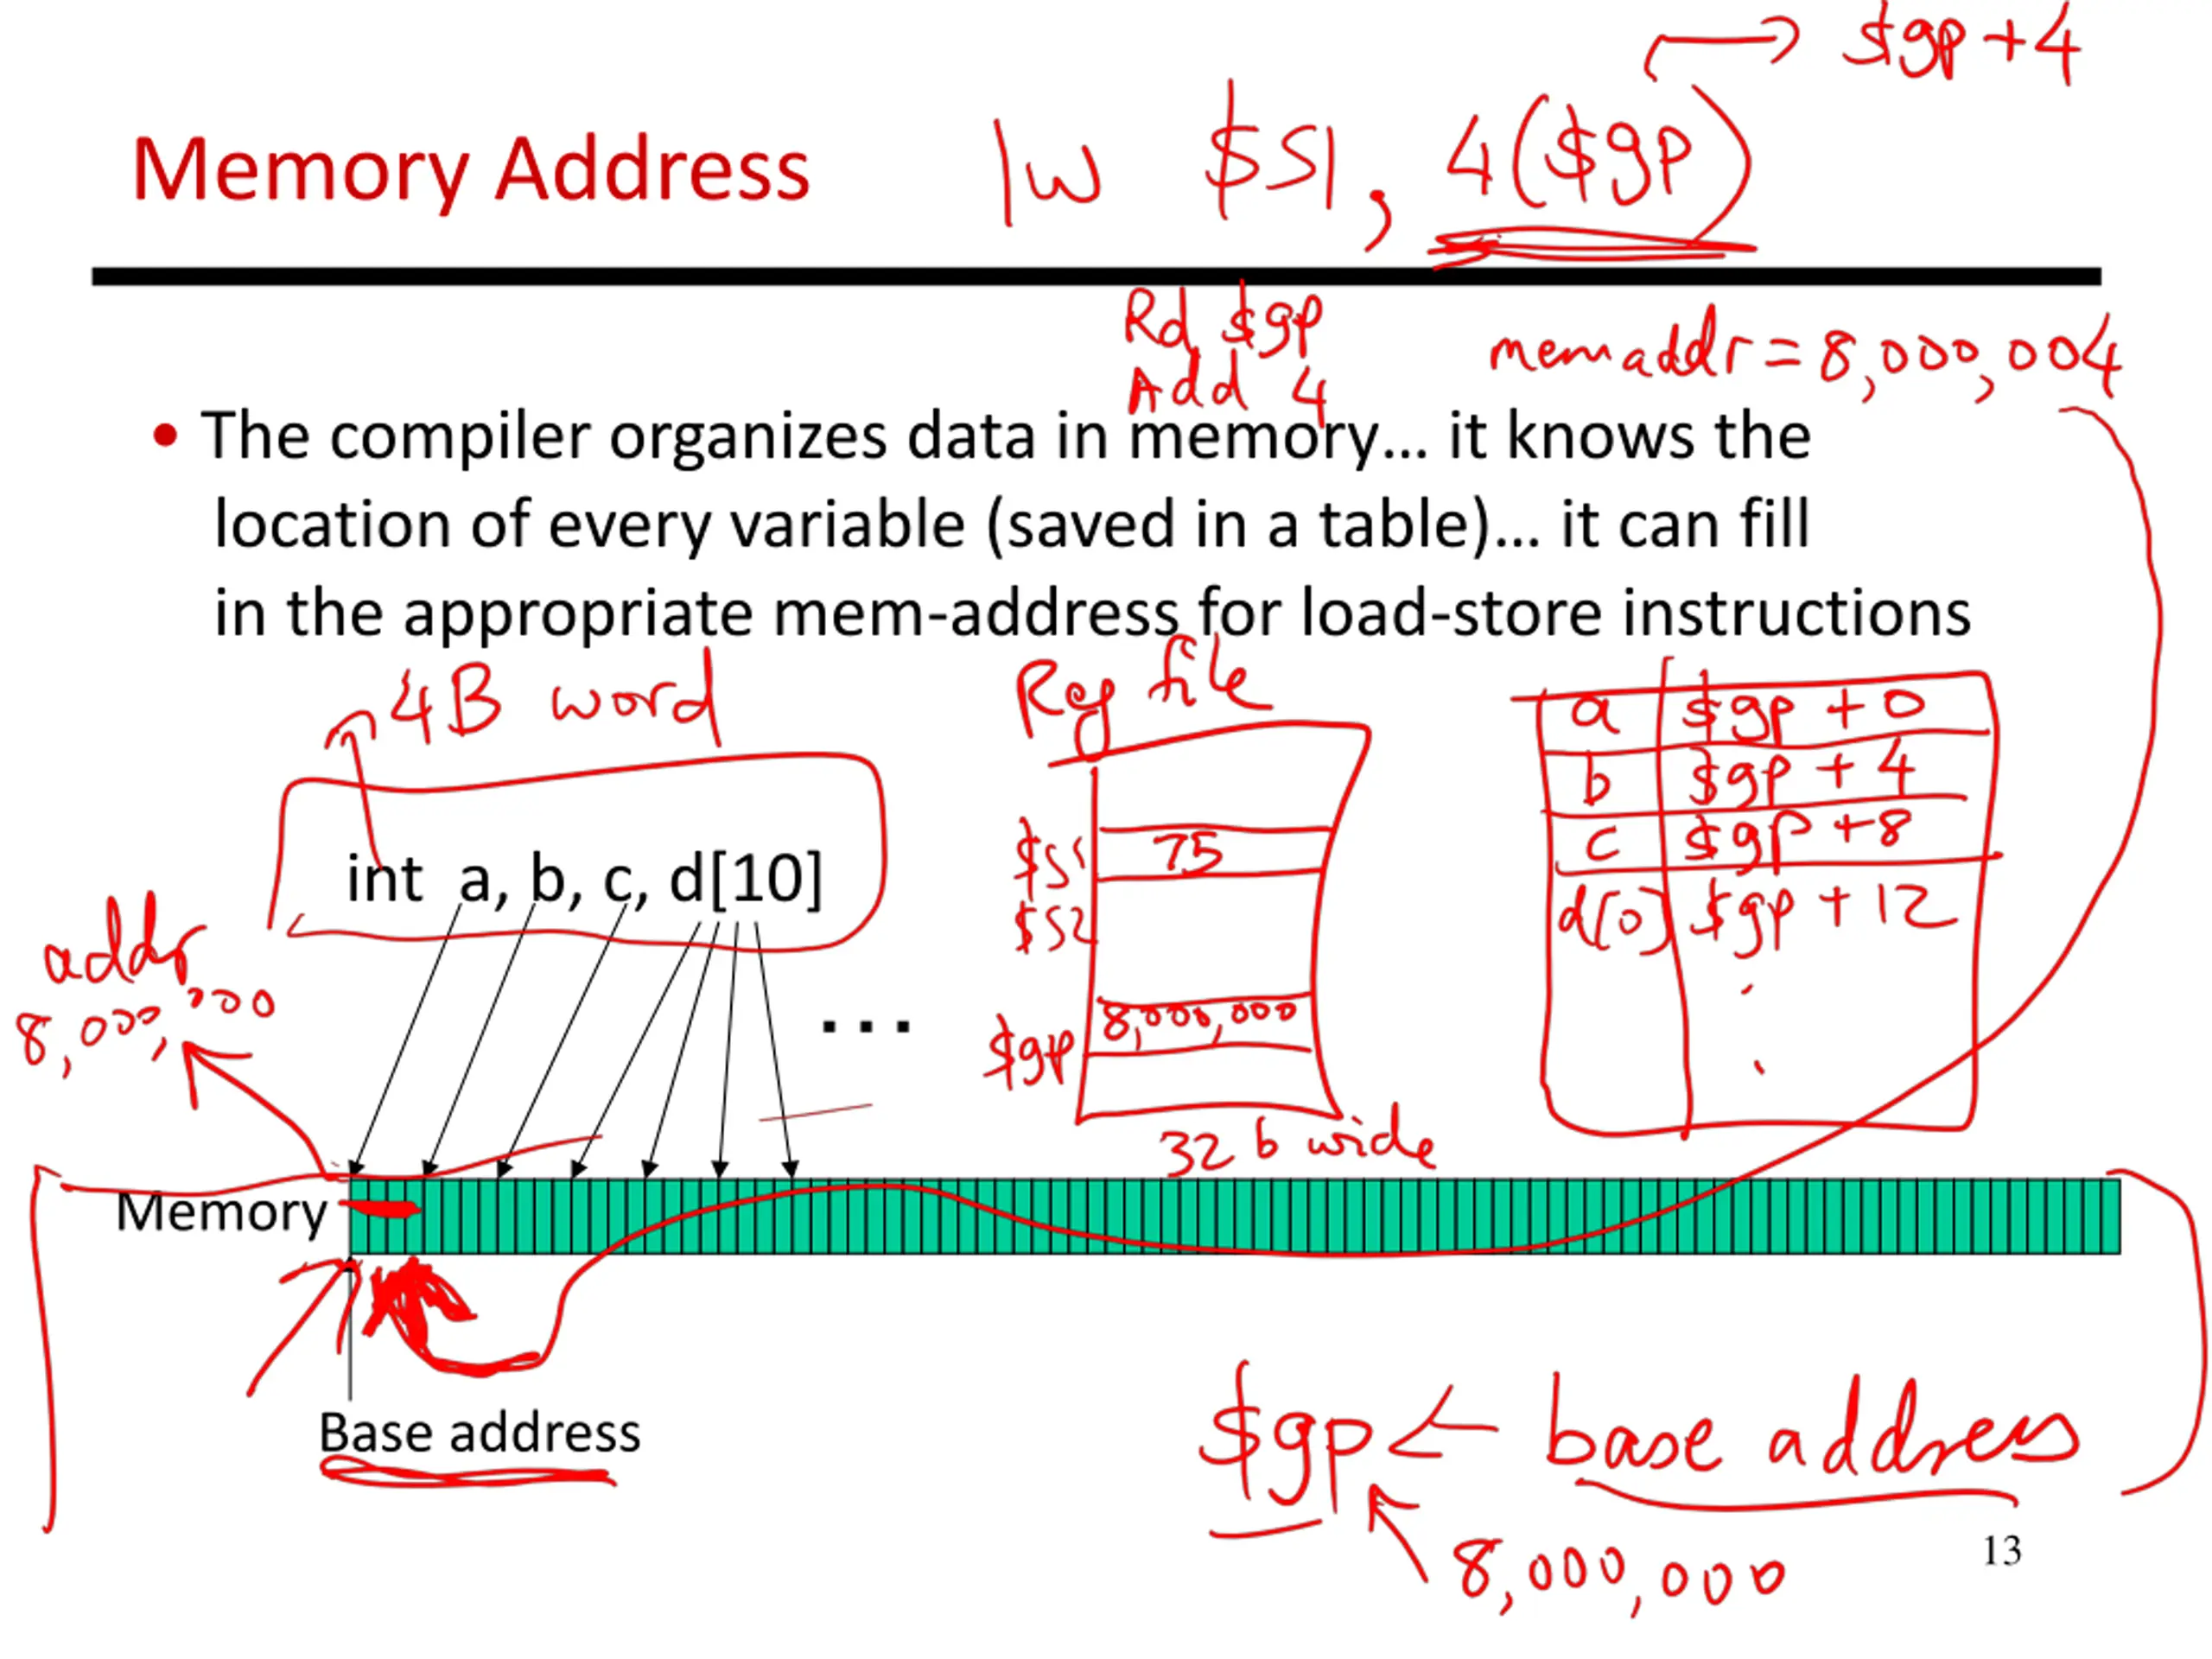 $gp+4
Memory Address
lw $s1, 4($gp)
Rd $gp
Add 4
memaddr = 8,000,004
• The compiler organizes data in memory… it knows the
location of every variable (saved in a table)… it can fill
in the appropriate mem-address for load-store instructions
4B word
Reg file
a $gp + 0
b $gp + 4
c $gp +8
d[0] $gp + 12
.
.
int a, b, c, d[10]
$s1 75
$s2
addr
8,000,000
...
$gp 8,000,000
32 b wide
Memory
Base address
$gp ← base address
8,000,000
13